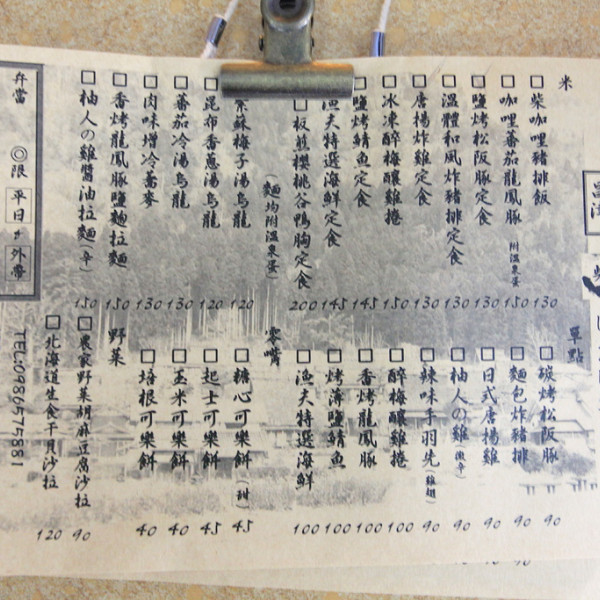 米
□柴咖哩豬排飯 130
□咖哩蕃茄龍鳳豚 附溫泉蛋 150
□鹽烤松阪豚定食 130
□溫體和風炸豬排定食 130
□唐揚炸雞定食 130
□冰凍醉梅釀雞捲 150
□鹽烤鯖魚定食 145
□漁夫特選海鮮定食 145
□板煎櫻桃谷鴨胸定食 200
(麵均附溫泉蛋)
紫蘇梅子湯烏龍 120
□昆布香蔥湯烏龍 120
□蕃茄冷湯烏龍 130
□肉味增冷蕎麥 130
□香烤龍鳳豚鹽麴拉麵 150
□柚人の雞醬油拉麵(辛) 150
弁當 ◎限 平日 外帶
單點
□碳烤松阪豚 90
□麵包炸豬排 90
□日式唐揚雞 90
□柚人の雞(微辛) 90
□辣味手羽先(雞翅) 90
□醉梅釀雞捲 100
□香烤龍鳳豚 100
□烤薄鹽鯖魚 100
□漁夫特選海鮮 100
零嘴
□糖心可樂餅(甜) 45
□起士可樂餅 45
□玉米可樂餅 40
□培根可樂餅 40
野菜
□農家野菜胡麻豆腐沙拉 90
□北海道生食干貝沙拉 120
TEL:0986574881